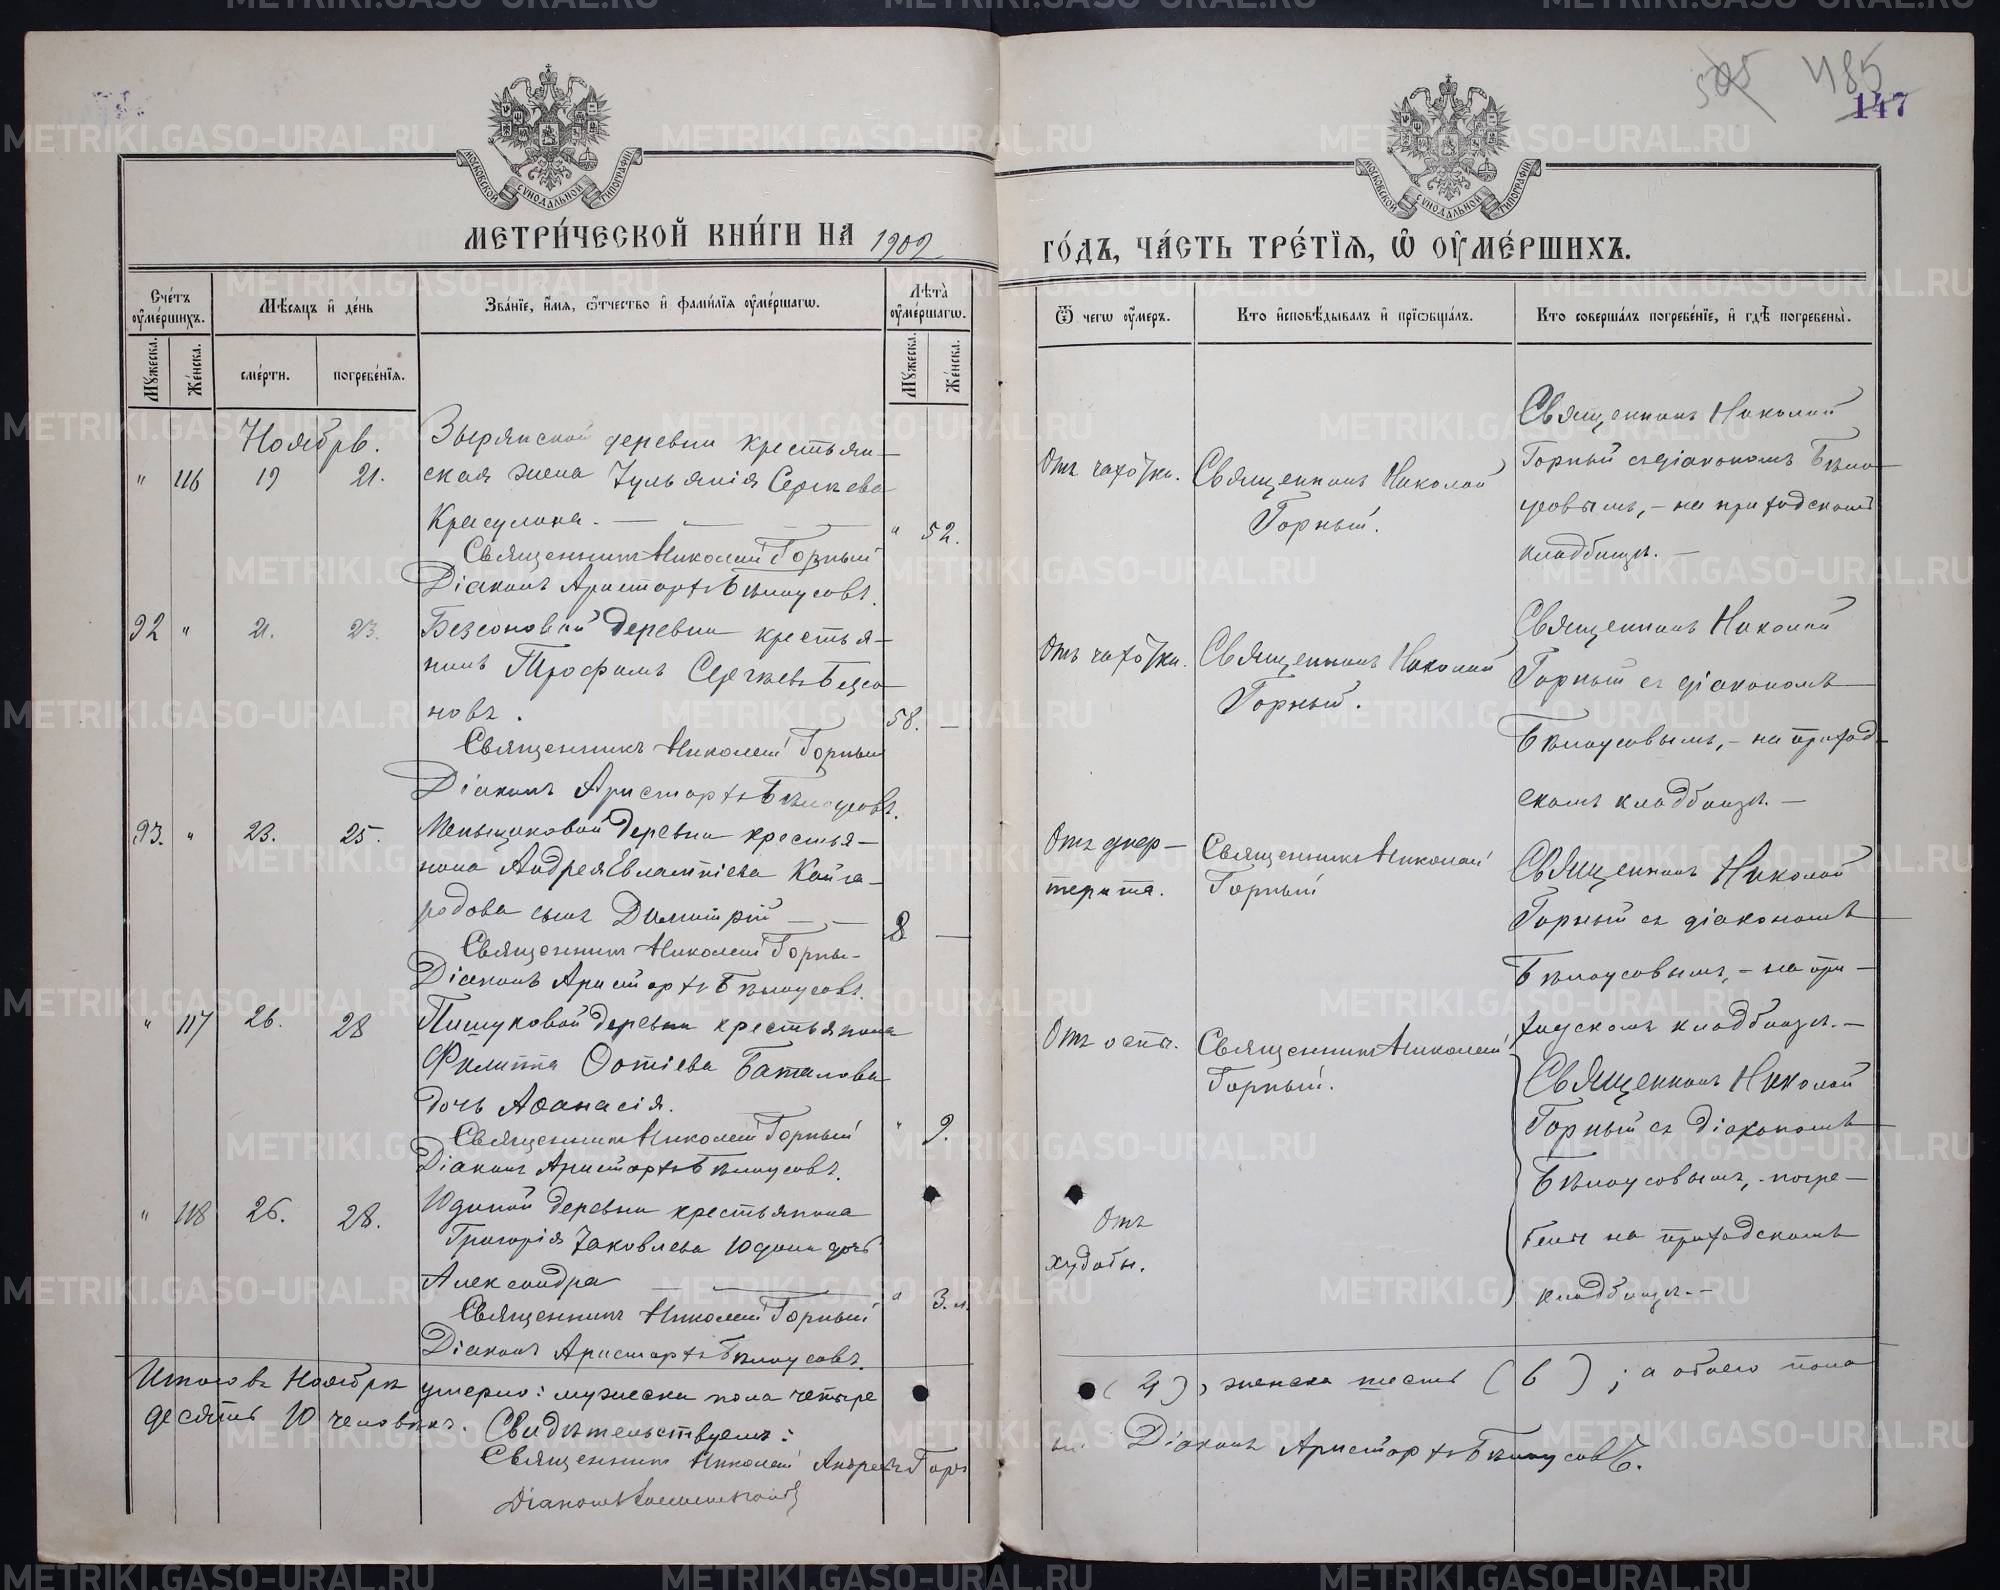 485
147
МЕТРИ́ЧЕСКОЙ КНИ́ГИ НА 1909
ГО́ДЪ, ЧА́СТЬ ТРЕ́ТІѦ, Ѡ ОУ҆МЕ́РШИХЪ.
МОСКОВСКОЙ СѴНОДАЛЬНОЙ ТИПОГРАФІИ
МОСКОВСКОЙ СѴНОДАЛЬНОЙ ТИПОГРАФІИ
Сче́тъ оу҆ме́ршихъ.
Мѣ́сяцъ и҆ де́нь
Зва́нїе, и҆́мя, ѻ҆́тчество и҆ фами́лїя оу҆ме́ршагѡ.
Лѣ́та̀ оу҆ме́ршагѡ.
Ѿ чегѡ̀ оу҆́меръ.
Кто̀ и҆сповѣ́дывалъ и҆ прїѡбща́лъ.
Кто̀ соверша́лъ погребе́нїе, и҆ гдѣ̀ погребены̀.
Мꙋ́жеска.
Же́нска.
сме́рти.
погребе́нїя.
Мꙋ́жеска.
Же́нска.
Ноябрь.
" 116 19 21.
Зырянской деревни крестьян-
ская жена Іульянія Сергѣева
Красулина. —
" 52.
Священникъ Николай Горный
Діаконъ Аристархъ Бѣлоусовъ.
Отъ чахотки.
Священникъ Николай
Горный.
Священникъ Николай
Горный съ діакономъ Бѣло-
усовымъ, - на приходскомъ
кладбищѣ. —
92 " 21. 23.
Безсоновой деревни крестья-
нинъ Трофимъ Сергѣевъ Безсо-
новъ.
58. —
Священникъ Николай Горный
Діаконъ Аристархъ Бѣлоусовъ.
Отъ чахотки.
Священникъ Николай
Горный.
Священникъ Николай
Горный съ діакономъ
Бѣлоусовымъ, - на приход-
скомъ кладбищѣ. —
93. " 23. 25.
Меньщиковой деревни крестья-
нина Андрея Евлампіева Кайго-
родова сынъ Димитрій —
8 —
Священникъ Николай Горны-
Діаконъ Аристархъ Бѣлоусовъ.
Отъ
Священникъ Николай
Горный
Священникъ Николай
Горный съ діакономъ
Бѣлоусовымъ, - на при-
ходскомъ кладбищѣ. —
" 117 26. 28
деревни крестьянина
Филиппа Фотіева Баталова
дочь Афанасія.
" 9.
Священникъ Николай Горный
Діаконъ Аристархъ Бѣлоусовъ.
Отъ оспы.
Священникъ Николай
Горный.
Священникъ Николай
Горный съ діакономъ
Бѣлоусовымъ, - погре-
бены на приходскомъ
кладбищѣ. —
" 118 26. 28.
Юдиной деревни крестьянина
Григорія Іаковлева Юдина дочь
Александра
" 3. м.
Священникъ Николай Горный
Діаконъ Аристархъ Бѣлоусовъ.
Отъ
худобы.
Итого въ Ноябрѣ умерло: мужеска пола четыре (4), женска шесть (6); а обоего пола
десять 10 человѣкъ. Свидѣтельствуемъ:
Священникъ Николай Андреевъ Горн
Діаконъ Аристархъ Бѣлоусовъ.
Діаконъ
METRIKI.GASO-URAL.RU